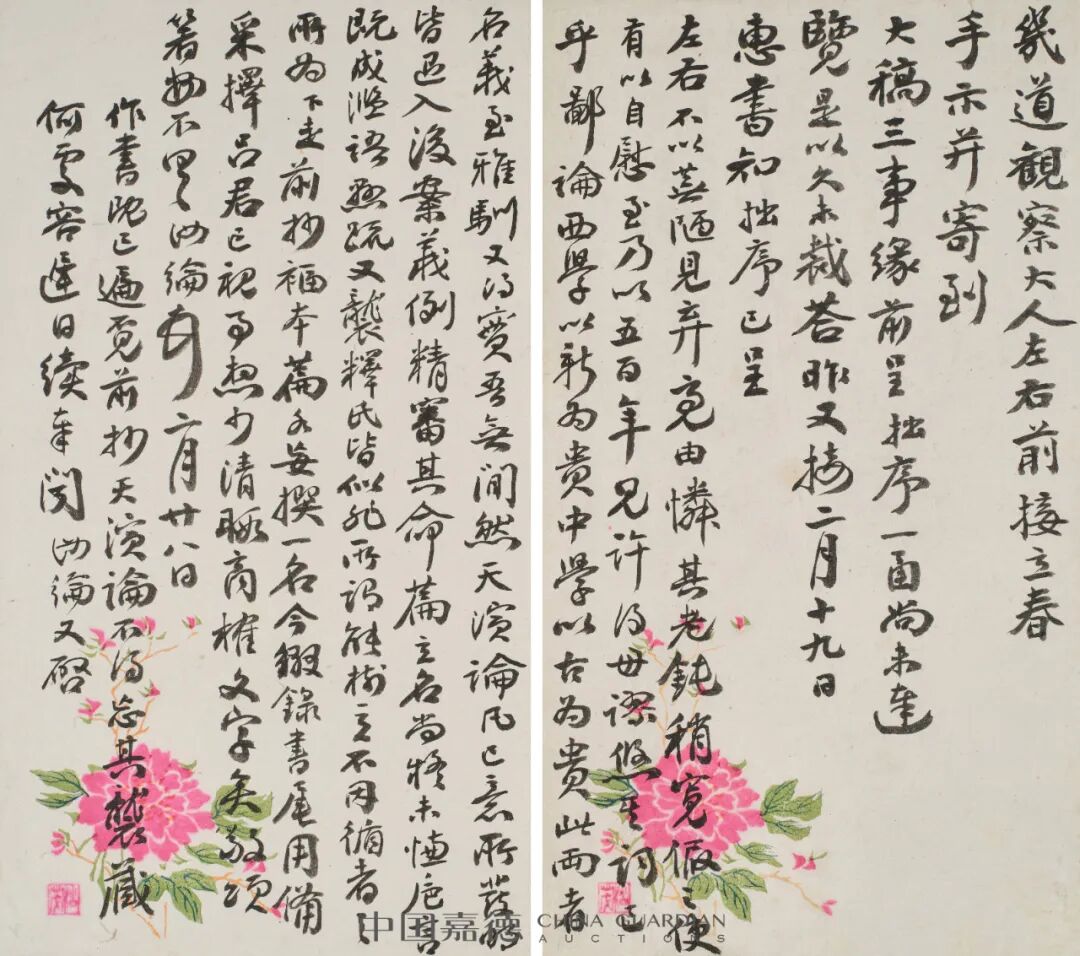 幾道觀察大人左右前接立春
手示并寄到
大稿三事緣前呈拙序一函尚未達
覽是以久未裁荅昨又接二月十九日
惠書知拙序已呈
左右不以蕪陋見棄亮由憐其老鈍稍寬假之使
有以自慰至乃以五百年見許得毋謬悠其詞已
乎鄙論西學以新為貴中學以古為貴此兩者
名義至雅馴又得實吾無間然天演論凡己意所發明
皆退入後案義例精審其命篇立名尚疑未慊卮言
既成濫語懸疏又襲釋氏皆似非所謂能樹立不因循者之
所為下走前抄福本篇各妄撰一名今綴錄書尾用備
采擇呂君已視事想少清暇商榷文字矣敬頌
箸安不具汝綸頓首二月廿八日
作書既已遍覓前抄天演論不得忘其襲藏
何處容遲日續奉聞汝綸又啓
中国嘉德 CHINA GUARDIAN
AUCTIONS